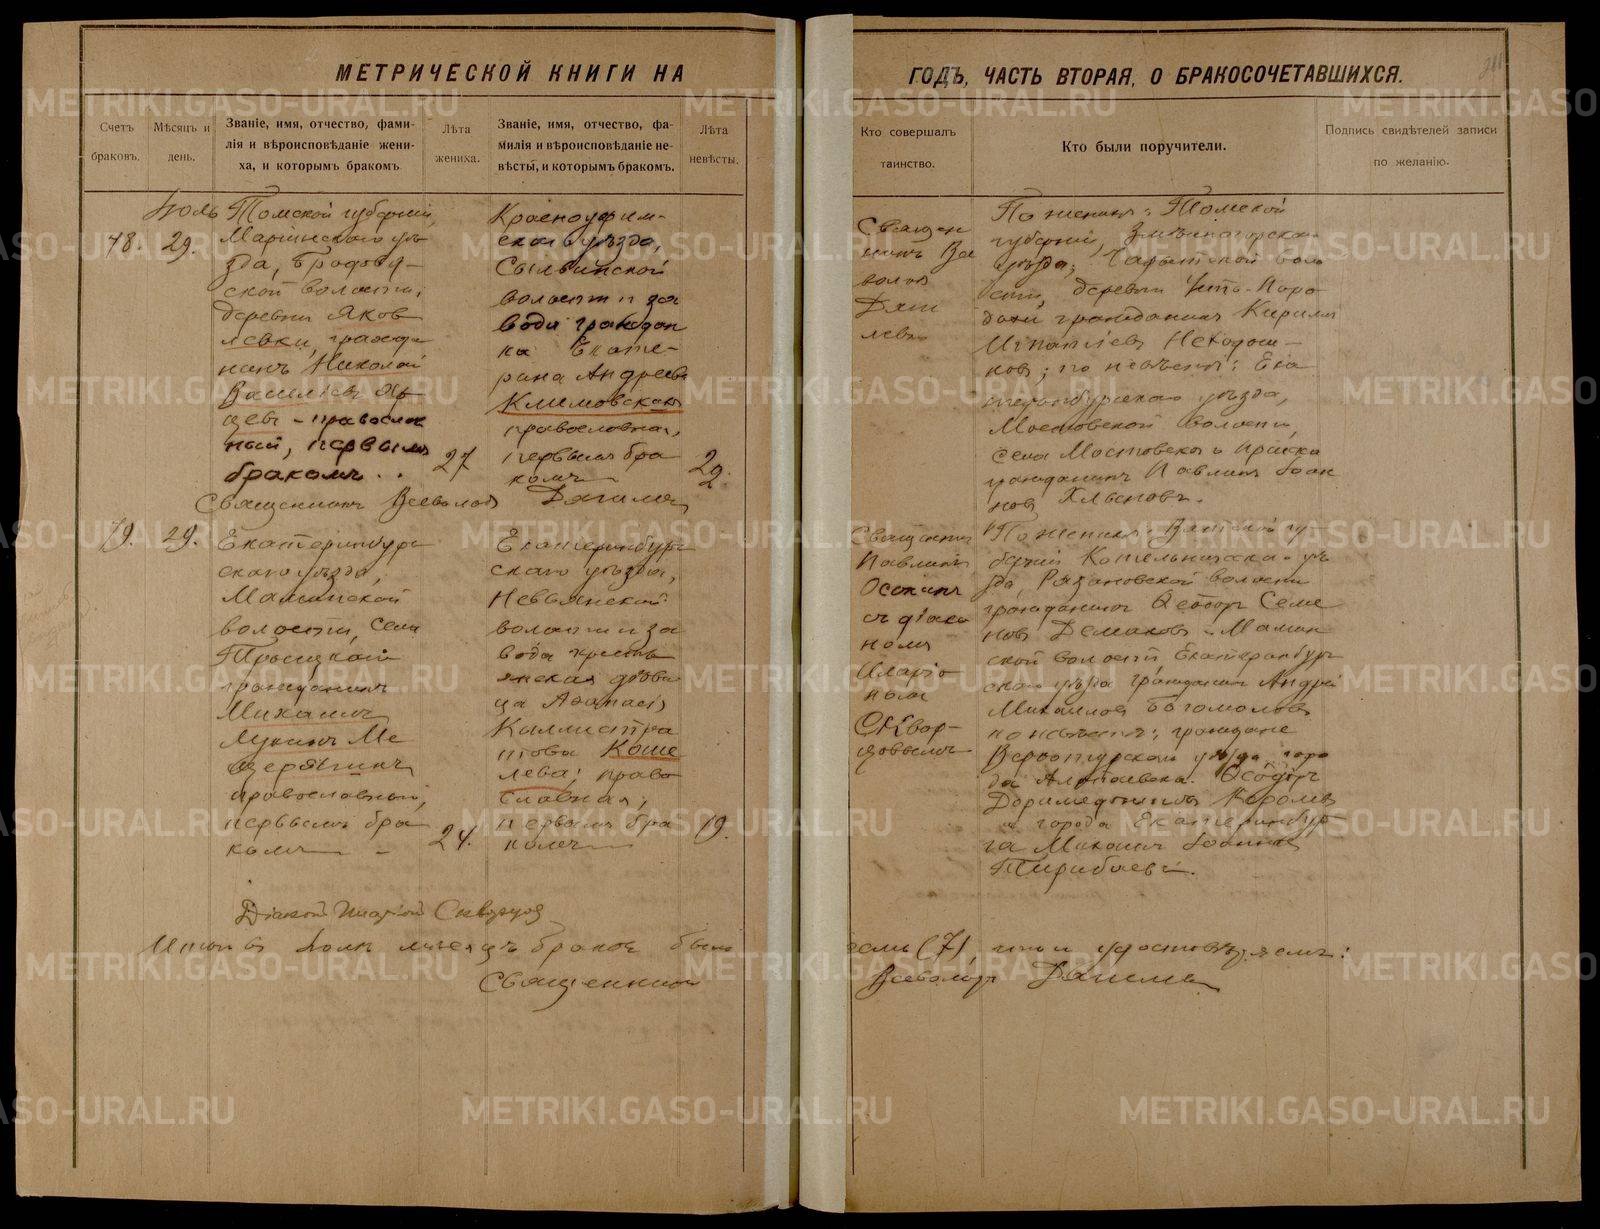 МЕТРИЧЕСКОЙ КНИГИ НА
ГОДЪ, ЧАСТЬ ВТОРАЯ, О БРАКОСОЧЕТАВШИХСЯ.
Счетъ
браковъ.
Мѣсяцъ и
день.
Званіе, имя, отчество, фами-
лія и вѣроисповѣданіе жени-
ха, и которымъ бракомъ.
Лѣта
жениха.
Званіе, имя, отчество, фа-
милія и вѣроисповѣданіе не-
вѣсты, и которымъ бракомъ.
Лѣта
невѣсты.
Кто совершалъ
таинство.
Кто были поручители.
Подпись свидѣтелей записи
по желанію.
78.
Іюль
29.
Томской губерніи,
Маріинскаго уѣ-
зда,
ской волости,
деревни Яков
левки, гражда
нинъ Николай
Васильевъ
православ
ный, первымъ
бракомъ
27
Красноуфим-
скаго уѣзда,
Сылвинской
волости и за
вода граждан
ка Екате-
рина Андреева
Климовская
православная,
первымъ бра
комъ
22.
Священникъ Всеволодъ
Священ
никъ Все
володъ
По женихѣ: Томской
губерніи, Змѣиногорскаго
уѣзда, Чарышской воло
сти, деревни
гражданинъ Кирилъ
Игнатіевъ
по невѣстѣ: Ека
теринбургскаго уѣзда,
Мостовской волости,
села Мостовского
гражданинъ Павлинъ Іоан
новъ
79.
29.
Екатеринбург
скаго уѣзда,
Маминской
волости, села
Троицкаго
гражданинъ
Михаилъ
Лукинъ Ме
щерягинъ
православный,
первымъ бра
комъ
24.
Екатеринбург
скаго уѣзда,
Невьянской
волости и за
вода кресть
янская дѣви
ца Афанасія
Каллистра
това Коше
лева; право
славная,
первымъ бра
комъ
19.
Священникъ
Павлинъ
Осокинъ
съ діако
номъ
Иларіо
номъ
Сквор-
цовымъ
По женихѣ: Вятской гу-
берніи Котельничскаго уѣ
зда, волости
гражданинъ Ѳеодоръ Семе
новъ Мамин
ской волости, Екатеринбург
скаго уѣзда гражданинъ Андрей
Михаиловъ Богомоловъ
по невѣстѣ: граждане
Верхотурскаго уѣзда, горо
да Алапаевска Ѳеодоръ
Доримедонтовъ Королевъ
и города Екатеринбур
га Михаилъ
Діаконъ Иларіонъ Скворцовъ
Итого въ Іюлѣ мѣсяцѣ браковъ было
семь (7), что и удостовѣряемъ:
Священникъ
Всеволодъ
METRIKI.GASO-URAL.RU